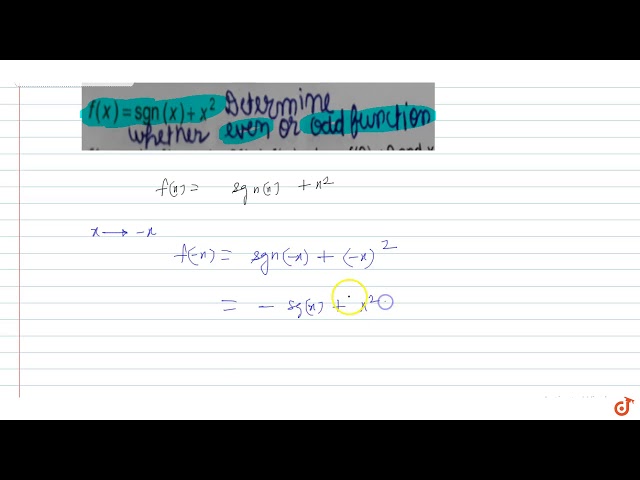 f(x) = sgn(x) + x² Determine
whether even or odd function
f(x) = sgn(x) + x²
x → -x
f(-x) = sgn(-x) + (-x)²
= - sg(x) + x²